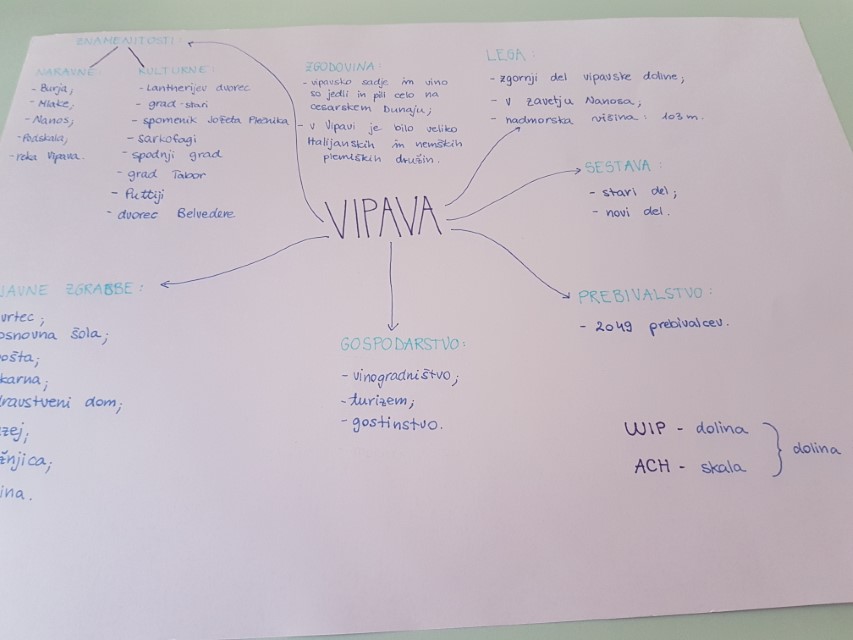 ZNAMENITOSTI:
NARAVNE:
- Burja;
- Mlake;
- Nanos;
- Podskala;
- reka Vipava.
KULTURNE:
- Lantherijev dvorec
- grad stari
- spomenik Jožeta
- sarkofagi
- spodnji grad
- grad Tabor
- Puttiji
- dvorec Belvedere
ZGODOVINA:
- vipavsko sadje in vino
so jedli in pili celo na
cesarskem Dunaju;
- v Vipavi je bilo veliko
Italijanskih in nemških
plemiških družin.
LEGA:
- zgornji del vipavske doline;
- v zavetju Nanosa;
- nadmorska višina: 103 m.
SESTAVA:
- stari del;
- novi del.
VIPAVA
JAVNE ZGRADBE:
vrtec;
osnovna šola;
ošta;
karna;
dravstveni dom;
zej;
žnjica;
ina.
GOSPODARSTVO:
- vinogradništvo;
- turizem;
- gostinstvo.
PREBIVALSTVO:
- 2049 prebivalcev.
WIP - dolina
ACH - skala
dolina